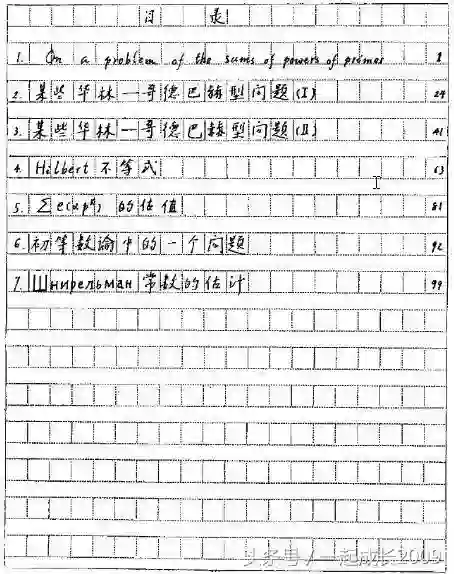 目 录
1. On a problem of the sums of powers of primes 1
2. 某些华林—哥德巴赫型问题(I) 24
3. 某些华林—哥德巴赫型问题(II) 41
4. Hilbert 不等式 63
5. ∑e(αp^k) 的估值 81
6. 初等数论中的一个问题 92
7. Шнирельман 常数的估计 99
头条号 / 一起成长2009